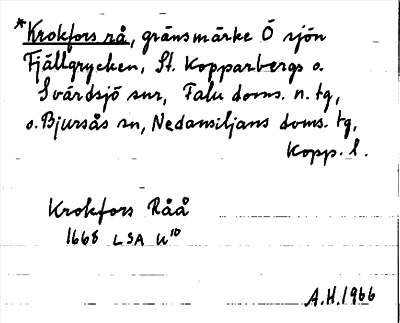 *Krokfors rå, gränsmärke Ö sjön
Fjällgrycken, St. Kopparbergs o.
Svärdsjö snr, Falu doms. n. tg,
o. Bjursås sn, Nedansiljans doms. tg,
Kopp. l.
Krokfors Råå
1668 LSA U¹⁰
A.H. 1966